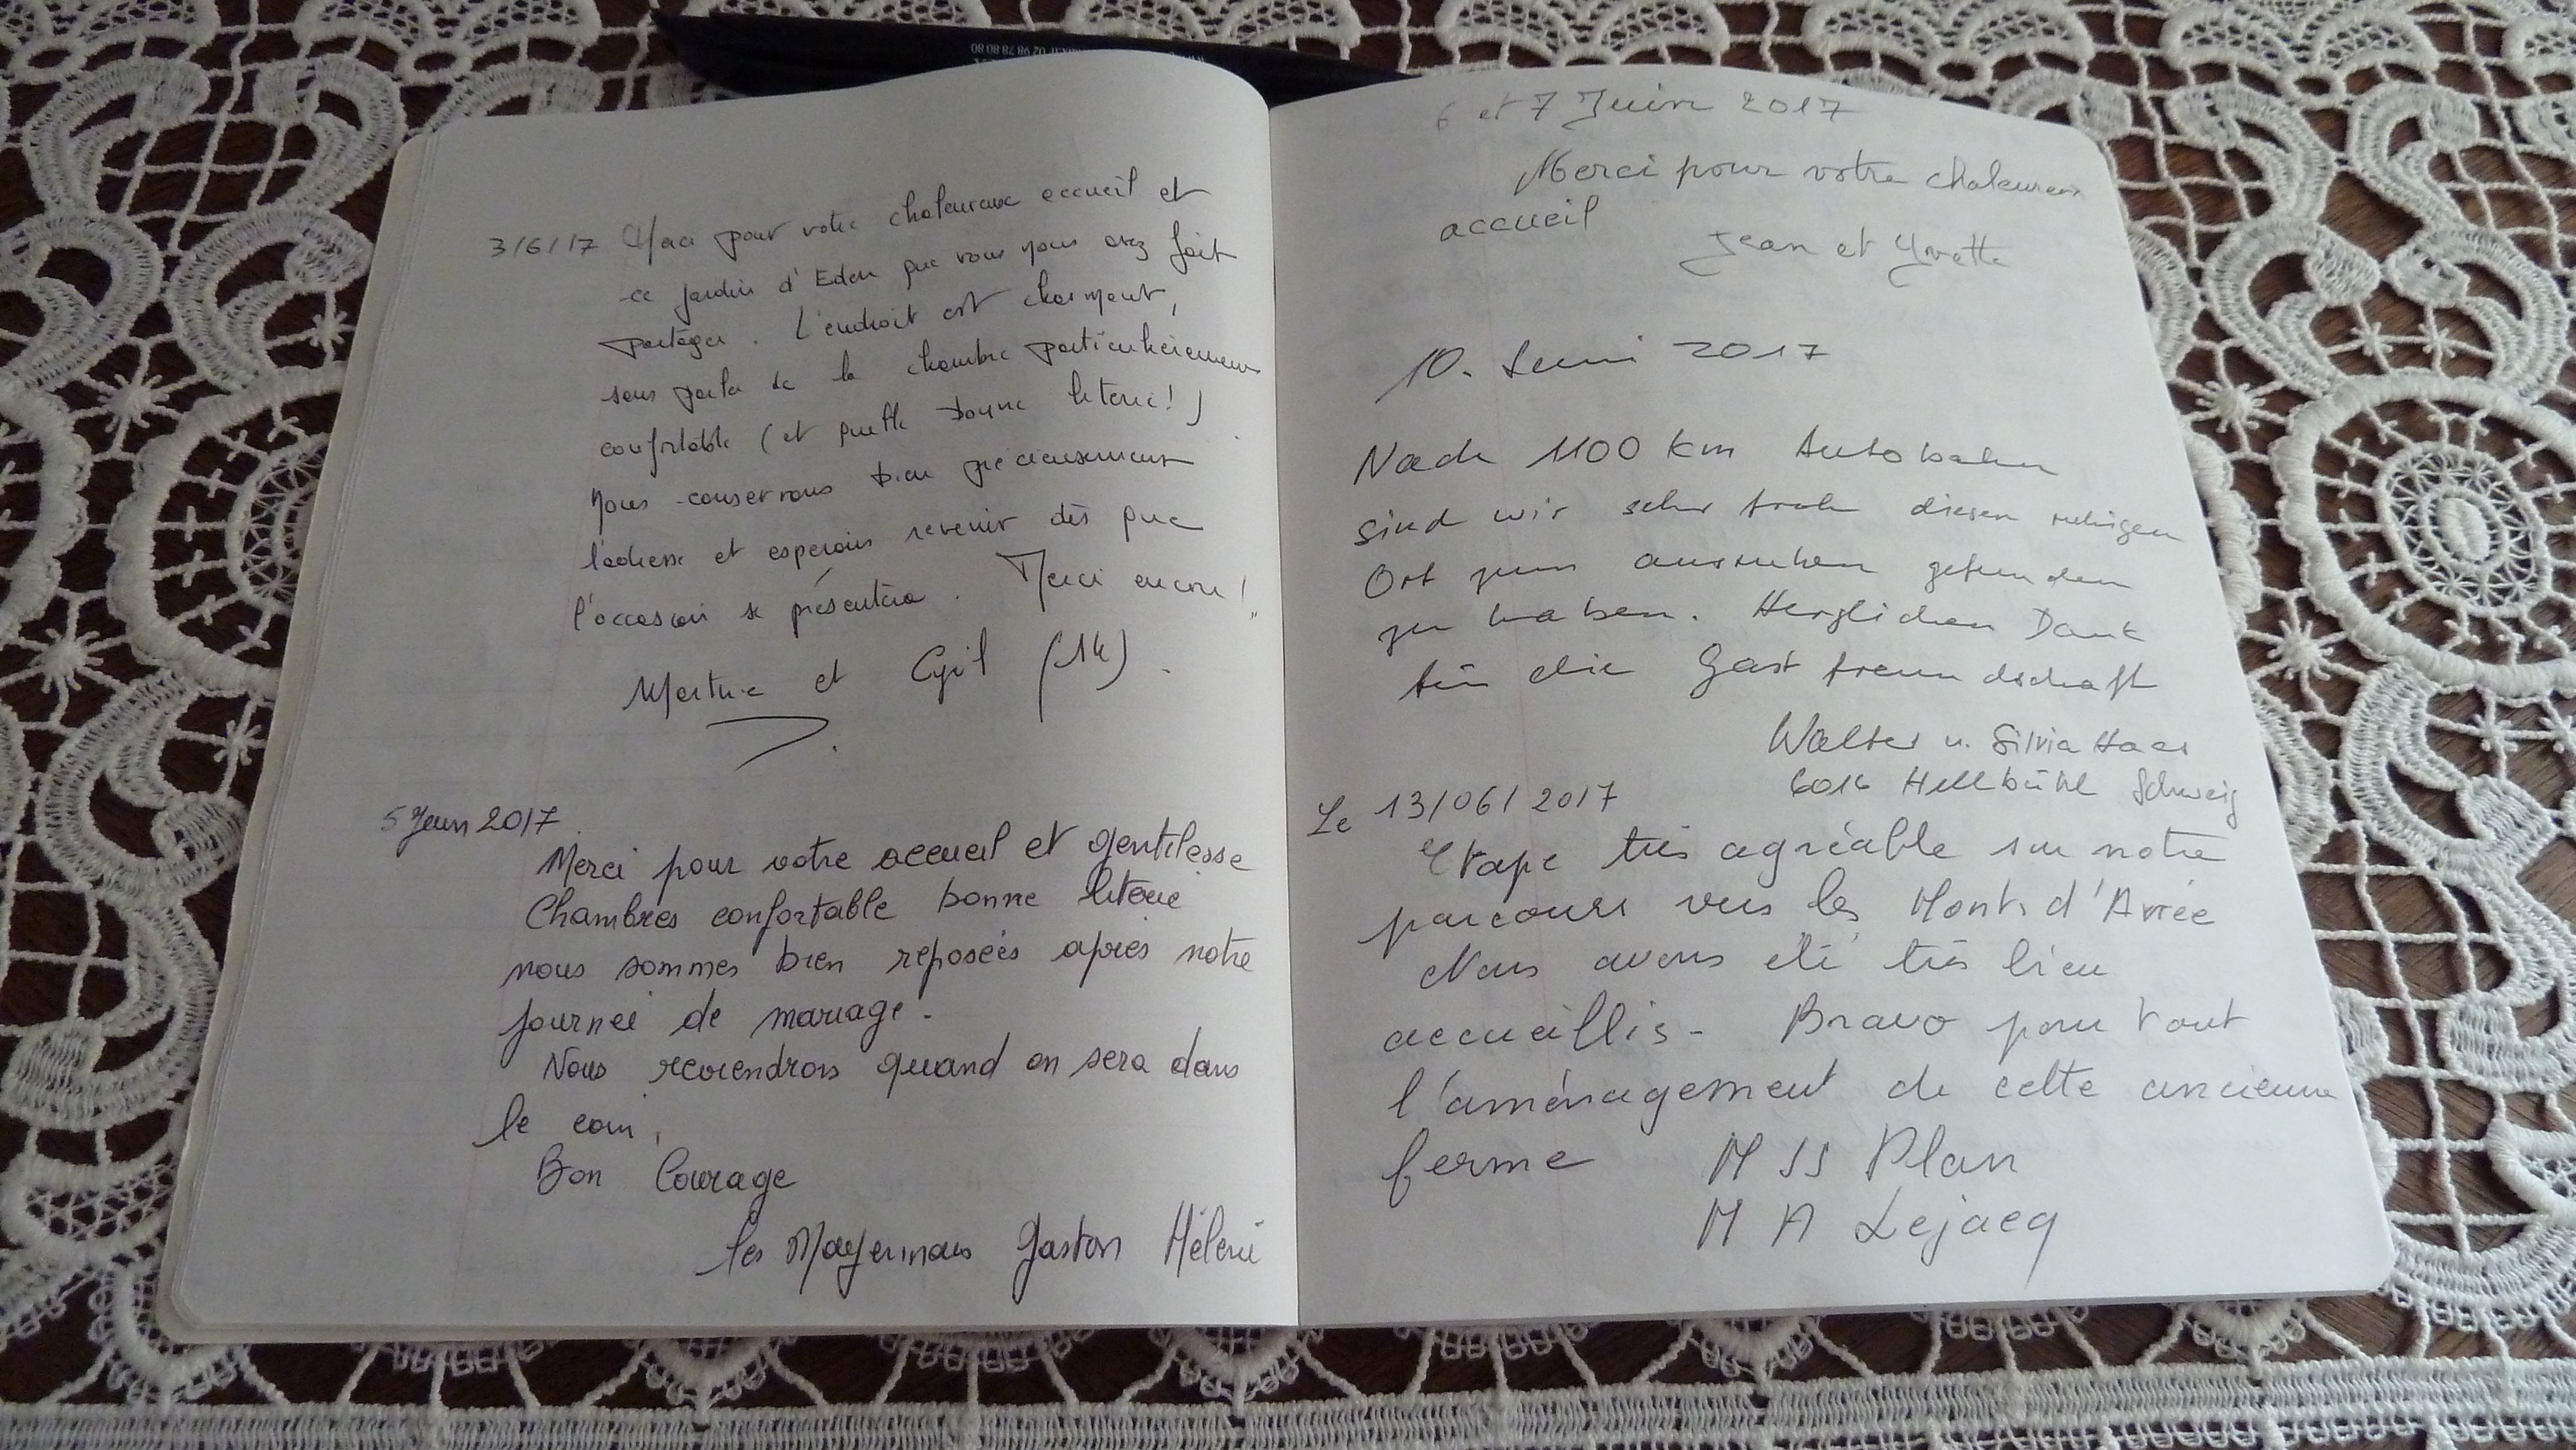 02 98 78 80 80
3/6/17 Merci pour votre chaleureux accueil et
ce jardin d'Eden que vous nous avez fait
partager. L'endroit est charmant,
sans parler de la chambre particulièrement
confortable (et quelle bonne literie!)
Nous conservons bien précieusement
l'adresse et espérons revenir dès que
l'occasion se présentera. Merci encore!
et Cyril (14).
5 Juin 2017
Merci pour votre accueil et gentilesse
Chambres confortable bonne literie
nous sommes bien reposées après notre
journée de mariage.
Nous reviendrons quand on sera dans
le coin.
Bon Courage
les Mayennais Gaston Hélène
6 et 7 Juin 2017
Merci pour votre chaleureux
accueil
Jean et Yvette
10. Juni 2017
Nach 1100 km Autobahn
sind wir sehr froh diesen ruhigen
Ort zum ausruhen gefunden
zu haben. Herzlichen Dank
für die Gastfreundschaft
Walter u. Silvia Haas
6016 Hellbühl Schweiz
Le 13/06/2017
Etape très agréable sur notre
parcours vers les Monts d'Arrée
Nous avons été très bien
accueillis - Bravo pour tout
l'aménagement de cette ancienne
ferme M Plan
M A Lejacq